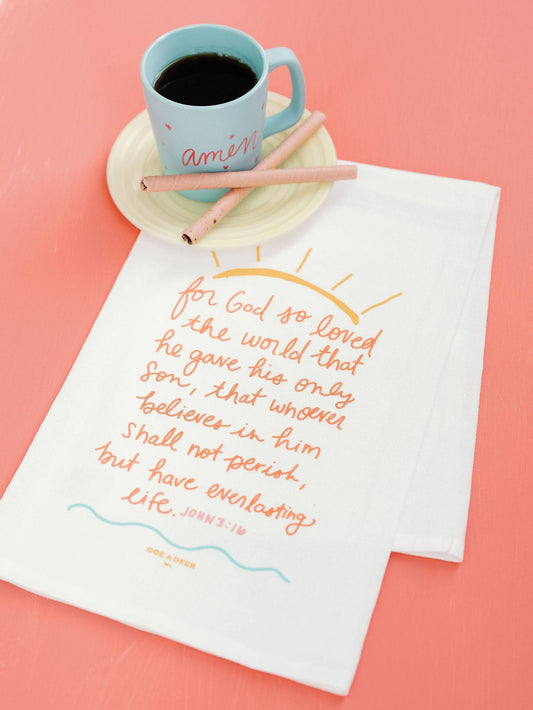 amen
for God so loved
the world that
he gave his only
Son, that whoever
believes in him
shall not perish,
but have everlasting
life. JOHN 3:16
DOE A DEER